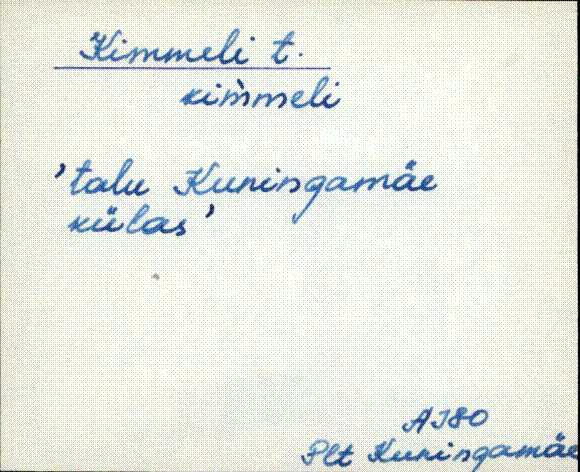 Kimmeli t.
kim̀meli
'talu Kuningamäe
külas'
AJ80
Plt Kuningamäe